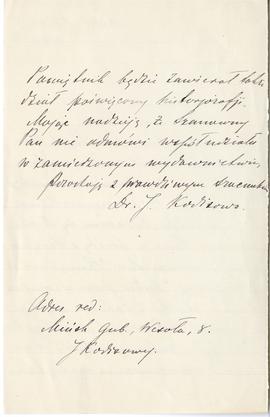 Pamiętnik będzie zawierał także
dział poświęcony historjozofji.
Mając nadzieję, że Szanowny
Pan nie odmówi współudziału
w zamierzonym wydawnictwie,
Pozostaję z prawdziwym szacunkiem
Dr. J. Kodisowa.
Adres red:
Mińsk Gub, Wesoła, 8.
J Kodisowej.